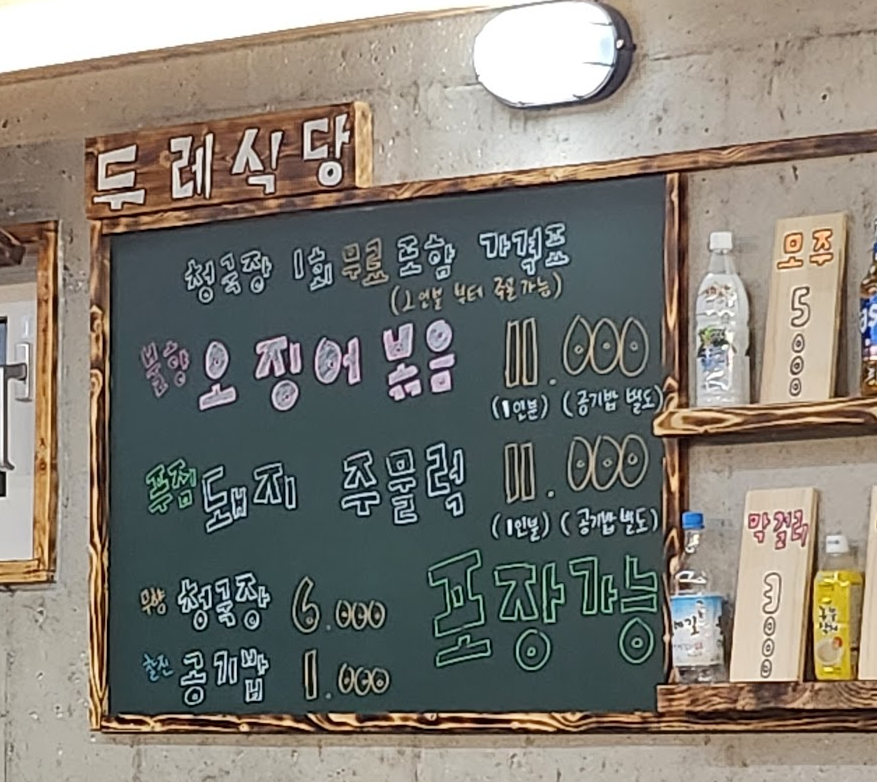 두레식당
청국장 1회 무료 포함 가격표
(2인분 부터 주문가능)
불향 오징어볶음 11.000
(1인분) (공기밥 별도)
돼지 주물럭 11.000
(1인분) (공기밥 별도)
청국장 6.000
포장가능
공기밥 1.000
모주
5000
막걸리
3000